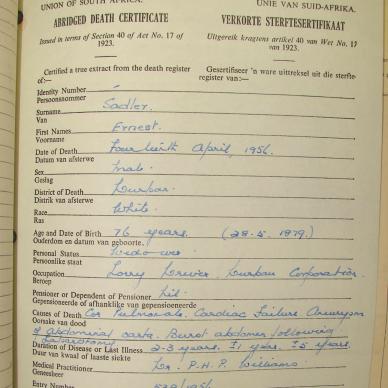 UNION OF SOUTH AFRICA. UNIE VAN SUID-AFRIKA.
ABRIDGED DEATH CERTIFICATE VERKORTE STERFTESERTIFIKAAT
Issued in terms of Section 40 of Act No. 17 of 1923. Uitgereik kragtens artikel 40 van Wet No. 17 van 1923.
Certified a true extract from the death register of:— Gesertifiseer 'n ware uittreksel uit die sterfteregister van:—
Identity Number
Persoonsnommer
Surname Sadler.
Van
First Names Ernest.
Voorname
Date of Death Fourteenth April, 1956.
Datum van afsterwe
Sex Male.
Geslag
District of Death Durban.
Distrik van afsterwe
Race White.
Ras
Age and Date of Birth 76 years. (28.5.1879.)
Ouderdom en datum van geboorte.
Personal Status Widower
Persoonlike staat
Occupation Lorry Driver, Durban Corporation.
Beroep
Pensioner or Dependent of Pensioner Nil.
Gepensioneerde of afhanklike van gepensioneerde
Causes of Death Cor Pulmonale. Cardiac Failure Aneurysm
Oorsake van dood of abdominal aorta. Burst abdomen following
Laparotomy
Duration of Disease or Last Illness 2-3 years. ±1 year. ±5 years.
Duur van kwaal of laaste siekte
Medical Practitioner Dr. P.H.P. Williams
Geneesheer
Entry Number